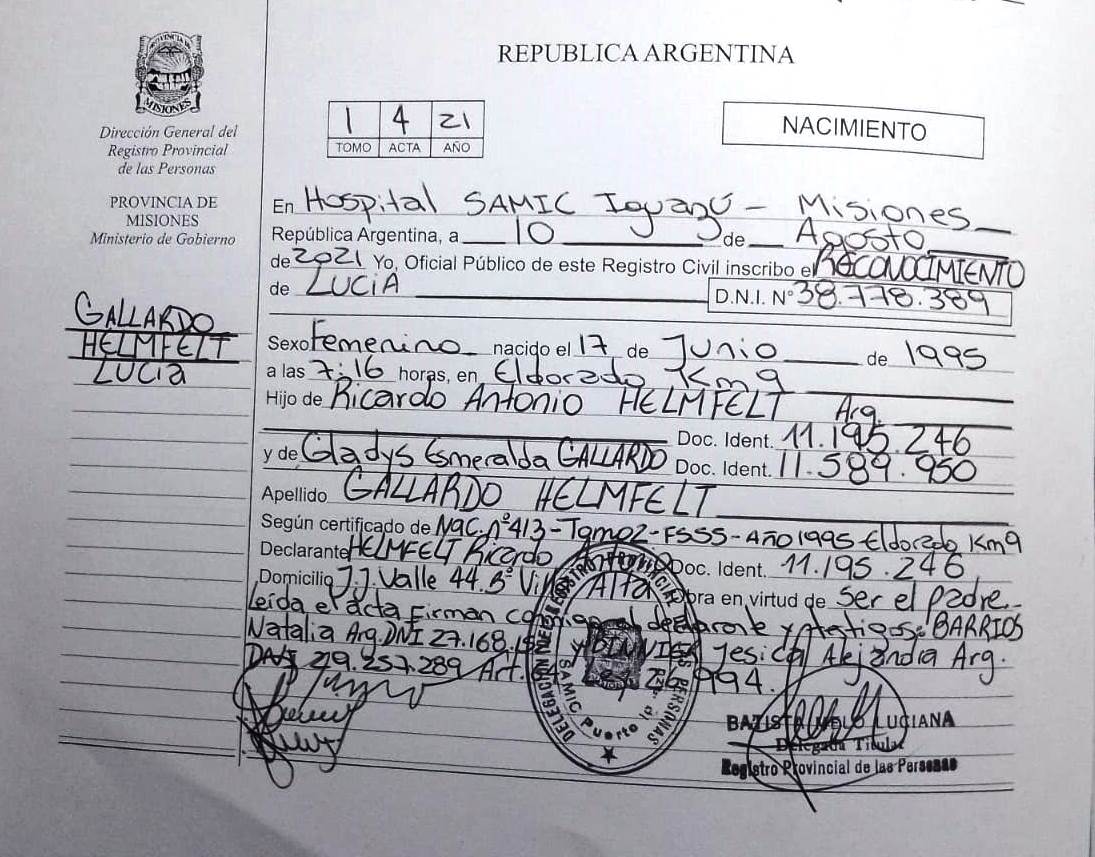 PROVINCIA DE
MISIONES
Dirección General del
Registro Provincial
de las Personas
PROVINCIA DE
MISIONES
Ministerio de Gobierno
GALLARDO
HELMFELT
LUCIA
REPUBLICA ARGENTINA
1 4 21
TOMO ACTA AÑO
NACIMIENTO
En Hospital SAMIC Iguazú - Misiones
República Argentina, a 10 de Agosto
de 2021 Yo, Oficial Público de este Registro Civil inscribo el RECONOCIMIENTO
de LUCIA D.N.I. N° 38.778.389
Sexo Femenino nacido el 17 de Junio de 1995
a las 7:16 horas, en Eldorado Km 9
Hijo de Ricardo Antonio HELMFELT Arg.
Doc. Ident. 11.195.246
y de Gladys Esmeralda GALLARDO Doc. Ident. 11.589.950
Apellido GALLARDO HELMFELT
Según certificado de Nac. nº 413-Tomo2-FSSS-Año 1995-Eldorado Km9
Declarante HELMFELT Ricardo Antonio Doc. Ident. 11.195.246
Domicilio J.J. Valle 44. Bº Villa Alta Obra en virtud de ser el padre-
Leída el acta firman conmigo el declarante y testigos: BARRIOS
Natalia Arg. DNI 27.168. y Jesica Alejandra Arg.
DNI 29.257.289 Art. Ley 26.994.
DELEGACION REGISTRO PROVINCIAL PERSONAS
SAMIC Puerto
BATISTA LUCIANA
Delegada Titular
Registro Provincial de las Personas